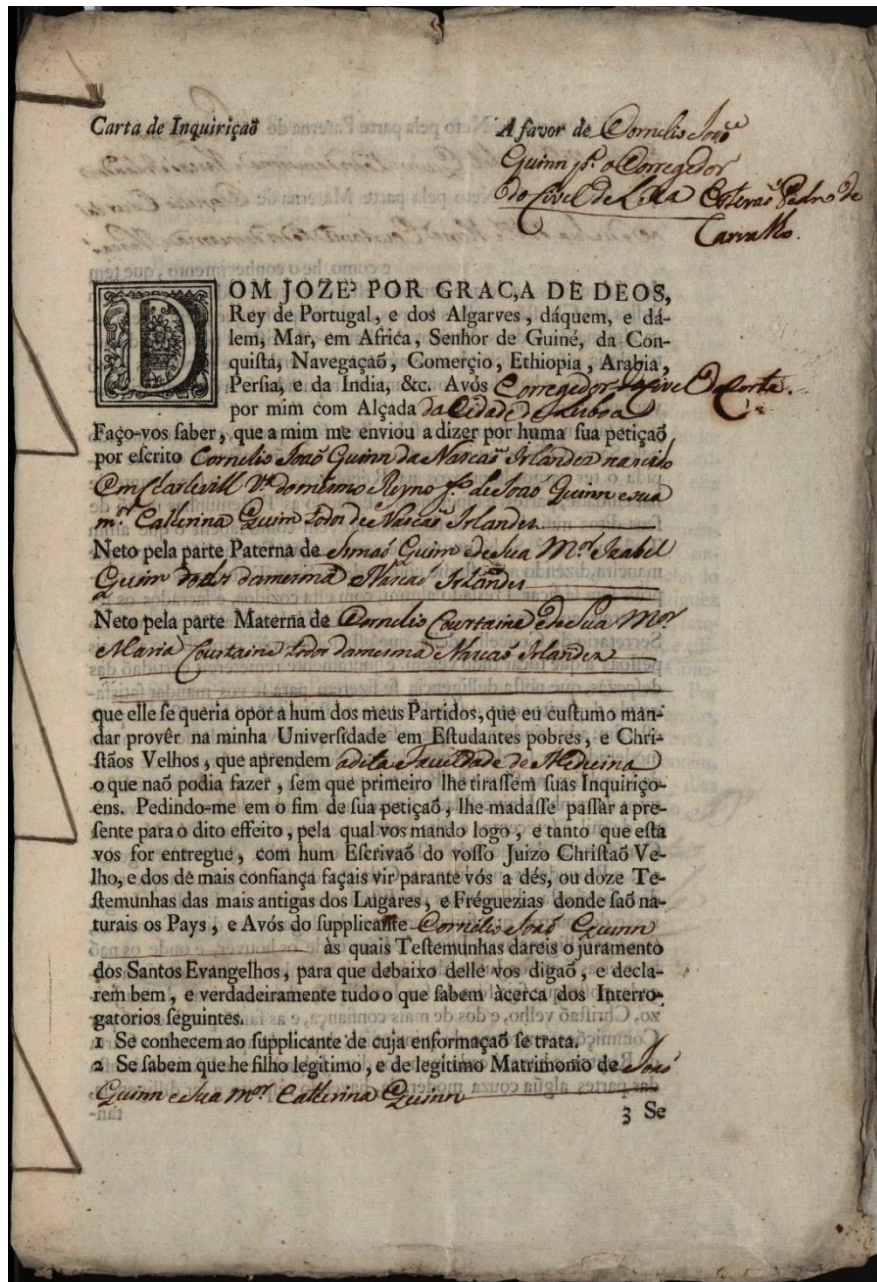 Carta de Inquiriçaõ
A favor de Cornelio Joaõ
Quinn pª. o Corregedor
do Civel de Lxa Esteraõ Pedro de
Carvalho.
DOM JOZE' POR GRAC,A DE DEOS,
Rey de Portugal, e dos Algarves, dáquem, e dá-
lem, Mar, em Africa, Senhor de Guiné, da Con-
quiſta, Navegaçaõ, Comerçio, Ethiopia, Arabia,
Perſia, e da India, &c. Avós Corregedor do Civel da Corte.
por mim com Alçada da Cidade de Lisboa
Faço-vos ſaber, que a mim me enviou a dizer por huma ſua petiçaõ
por eſcrito Cornelio Joaõ Quinn da Nascaõ Irlandez nascido
em Clarlevill Vª do mesmo Reyno fº. de Joaõ Quinn e sua
mer. Catherina Quinn todos de Nascaõ Irlandez
Neto pela parte Paterna de Simaõ Quinn e de Sua Mer Izabel
Quinn todos da mesma Nascaõ Irlandez
Neto pela parte Materna de Cornelio Courtaine e de Sua Mer
Maria Courtaine todos da mesma Nascaõ Irlandez
que elle ſe queria opor a hum dos meus Partidos, que eu cuſtumo man-
dar provêr na minha Univerſidade em Eſtudantes pobres, e Chri-
ſtãos Velhos, que aprendem a dita Faculdade de Medicina
o que naõ podia fazer, ſem que primeiro lhe tiraſſem ſuas Inquiriço-
ens. Pedindo-me em o fim de ſua petiçaõ, lhe madaſſe paſſar a pre-
ſente para o dito effeito, pela qual vos mando logo, e tanto que eſta
vos for entregue, com hum Eſcrivaõ do voſſo Juizo Chriſtaõ Ve-
lho, e dos de mais confiança façais vir parante vós a dés, ou doze Te-
ſtemunhas das mais antigas dos Lugares, e Fréguezias donde ſaõ na-
turais os Pays, e Avós do ſupplicante Cornelio Joaõ Quinn
às quais Teſtemunhas dareis o juramento
dos Santos Evangelhos, para que debaixo delle vos digaõ, e decla-
rem bem, e verdadeiramente tudo o que ſabem àcerca dos Interro-
gatorios ſeguintes.
1 Se conhecem ao ſupplicante de cuja enformaçaõ ſe trata.
2 Se ſabem que he filho legitimo, e de legitimo Matrimonio de Joaõ
Quinn e sua mer. Catherina Quinn
3 Se